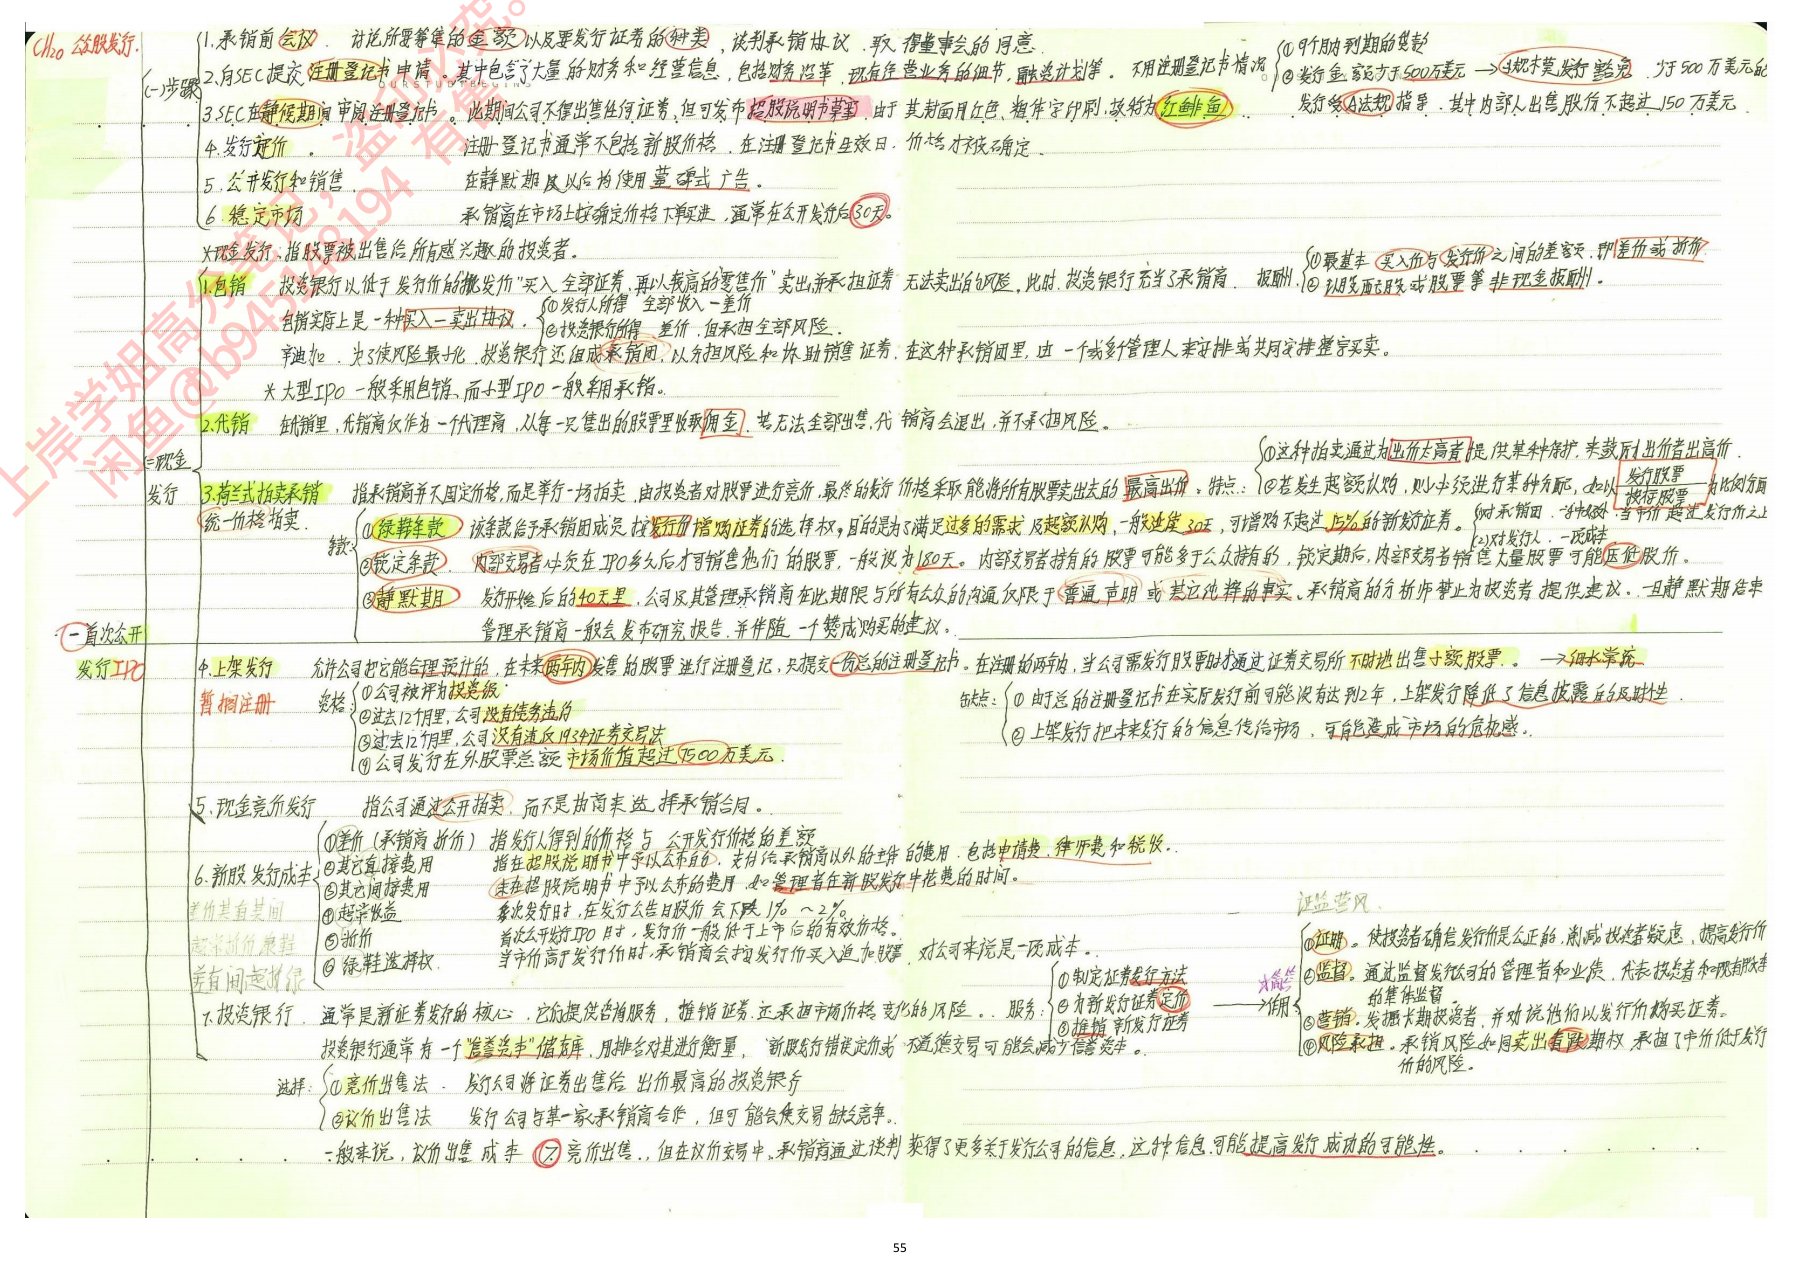 CH20 公股发行.
一 首次公开
发行IPO
(一)步骤
1. 承销前会议. 讨论所要筹集的金额以及要发行证券的种类, 谈判承销协议. 取得董事会的同意.
2. 向SEC提交注册登记书申请。其中包含了大量的财务和经营信息, 包括财务沿革, 现有经营业务的细节, 融资计划等。 不用注册登记书情况。
① 9个月内到期的贷款
② 发行金额少于500万美元 → 小规模发行豁免 少于500万美元的
发行受A法规指导. 其中内部人出售股份不超过150万美元.
OURSTUDYBEGINS
3. SEC在静候期间审阅注册登记书。此期间公司不得出售任何证券, 但可发布招股说明书草案 由于其封面用红色、粗体字印刷, 故称为红鲱鱼
4. 发行定价。 注册登记书通常不包括新股价格. 在注册登记书生效日, 价格才被确定.
5. 公开发行和销售. 在静默期及以后均使用墓碑式广告。
6. 稳定市场 承销商在市场上按确定价格下单买进, 通常在公开发行后30天。
二现金
发行
*现金发行: 指股票被出售给所有感兴趣的投资者。
1. 包销 投资银行以低于发行价的“批发价”买入全部证券, 再以较高的“零售价”卖出, 并承担证券无法卖出的风险, 此时, 投资银行充当了承销商. 报酬
① 最基本 买入价与发行价之间的差额, 即差价或折价
② 认股配股或股票等非现金报酬。
包销实际上是一种买入—卖出协议.
① 发行人所得 全部收入-差价
② 投资银行所得 差价, 但承担全部风险.
辛迪加. 为了使风险最小化, 投资银行还组成承销团, 以分担风险和协助销售证券. 在这种承销团里, 由一个或多个管理人来安排或共同安排整宗买卖。
* 大型IPO一般采用包销, 而小型IPO一般采用承销。
2. 代销 在代销里, 代销商仅作为一个代理商, 从每一只售出的股票里收取佣金. 若无法全部出售, 代销商会退出, 并不承担风险。
3. 荷兰式拍卖承销 指承销商并不固定价格, 而是举行一场拍卖, 由投资者对股票进行竞价, 最终的发行价格采取能将所有股票卖出去的最高出价. 特点:
统一价格拍卖.
① 这种拍卖通过为出价太高者提供某种保护, 来鼓励出价者出高价.
② 若发生超额认购, 则必须进行某种分配, 如以 发行股票 为比例分配
条款:
① 绿鞋条款 该条款给予承销团成员按发行价增购证券的选择权. 目的是为了满足过多的需求及超额认购, 一般延续30天, 可增购不超过15%的新发行证券。
(2)对发行人. 一项成本
② 锁定条款. 内部交易者必须在IPO多久后才可销售他们的股票, 一般设为180天。内部交易者持有的股票可能多于公众持有的, 锁定期后, 内部交易者销售大量股票可能压低股价。
③ 静默期 发行开始后的40天里, 公司及其管理承销商在此期限与所有公众的沟通仅限于普通声明或其它纯粹的事实、承销商的分析师禁止为投资者提供建议. 一旦静默期结束
管理承销商一般会发布研究报告, 并伴随一个赞成购买的建议。
4. 上架发行 允许公司把它能合理预计的, 在未来两年内发售的股票进行注册登记, 只提交一份总的注册登记书。在注册的两年内, 当公司需发行股票时才通过证券交易所不时地出售小额股票. → 细水常流
暂搁注册
资格:
① 公司被评为投资级.
② 过去12个月里, 公司没有债务违约
③ 过去12个月里, 公司没有违反1934证券交易法
④ 公司发行在外股票总额市场价值超过7500万美元.
缺点:
① 由于总的注册登记书在实际发行前可能没有达到2年, 上架发行降低了信息披露的及时性.
② 上架发行把未来发行的信息传给市场, 可能造成市场的危机感。
5. 现金竞价发行 指公司通过公开拍卖, 而不是由商来选择承销合同。
6. 新股发行成本
差价其直其间
超常折价绿鞋
差直间超折绿
① 差价 (承销商折价) 指发行人得到的价格与公开发行价格的差额
② 其它直接费用 指在招股说明书中予以公布的, 支付给承销商以外的主体的费用. 包括申请费、律师费和税收.
③ 其它间接费用 未在招股说明书中予以公布的费用, 如管理者在新股发行中花费的时间。
④ 超常收益 多次发行时, 在发行公告日股价会下跌1%~2%
⑤ 折价 首次公开发行IPO时, 发行价一般低于上市后的有效价格。
⑥ 绿鞋选择权. 当市价高于发行价时, 承销商会按发行价买入追加股票. 对公司来说是一项成本。
7. 投资银行. 通常是新证券发行的核心. 它们提供咨询服务, 推销证券, 还承担市场价格变化的风险。 服务:
① 制定证券发行方法
② 为新发行证券定价
③ 推销新发行证券
→ 作用
证监营风
① 证明. 使投资者确信发行价是公正的, 削减投资者疑虑, 提高发行价
② 监督. 通过监督发行公司的管理者和业绩, 代表投资者和现有股东
的集体监督.
③ 营销. 发掘长期投资者, 并劝说他们以发行价购买证券。
④ 风险承担. 承销风险如同卖出看跌期权 承担了市价低于发行
价的风险。
投资银行通常有一个“信誉资本”储存库, 用排名对其进行衡量, 新股发行错误定价或不道德交易可能会减少信誉资本。
选择:
① 竞价出售法. 发行公司将证券出售给出价最高的投资银行
② 议价出售法 发行公司与某一家承销商合作, 但可能会使交易缺乏竞争。
一般来说, 议价出售成本 > 竞价出售, 但在议价交易中, 承销商通过谈判获得了更多关于发行公司的信息, 这种信息可能提高发行成功的可能性。
上岸学姐高分笔记, 盗卖必究。
闲鱼@b945148194 有售
55